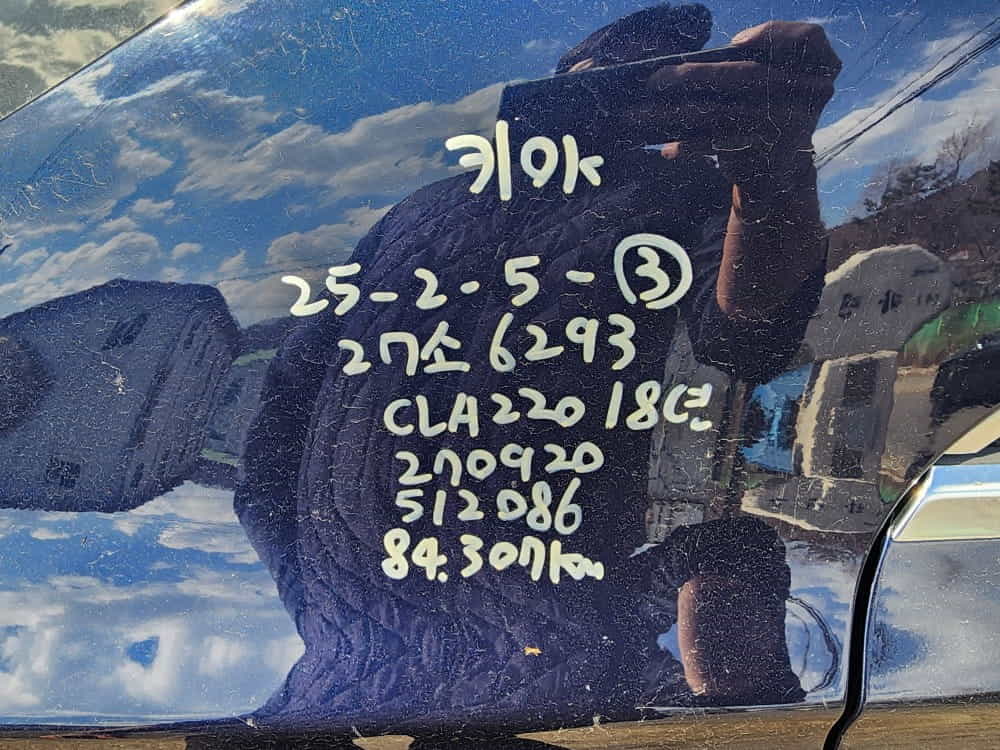 키아
25-2-5-③
27소6293
CLA220 18년
270920
512086
84.307km